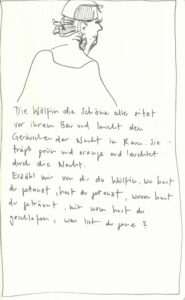 Die Wölfin die Schöne alte sitzt
vor ihrem Bau und lauscht den
Geräuschen der Nacht in Ruhe. Sie
trägt grün und orange und leuchtet
durch die Nacht.
Erzähl mir von dir du Wölfin, wo hast
du getanzt, hast du getanzt, wovon hast
du geträumt, mit wem hast du
geschlafen, was isst du gerne?